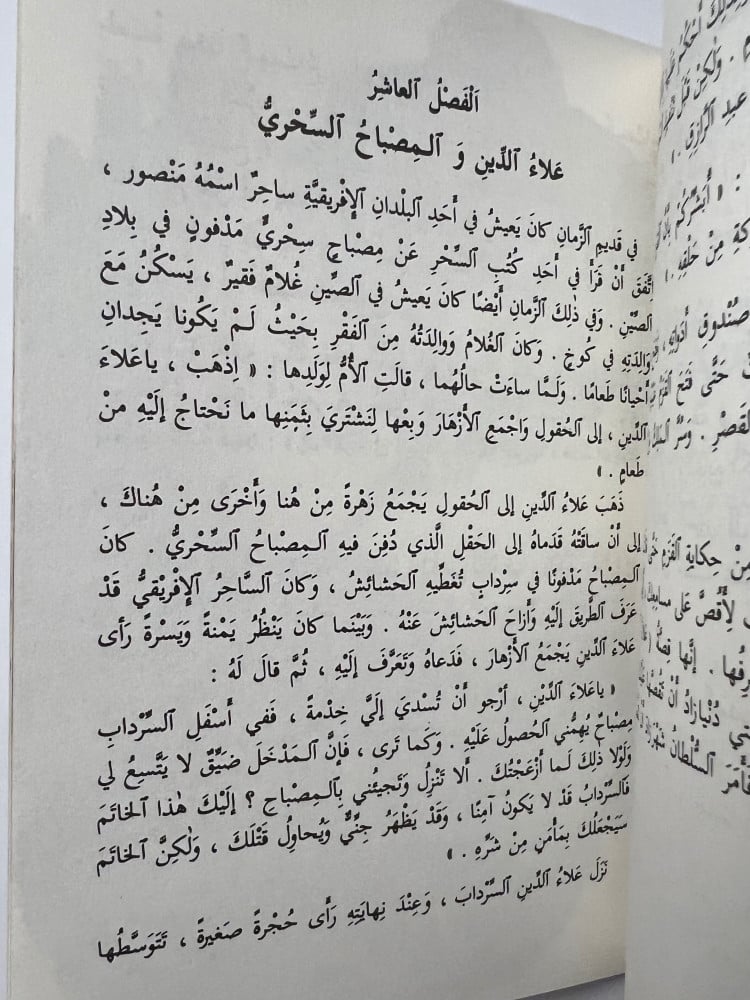 اَلْفَصْلُ ٱلعاشِرُ
عَلاءُ ٱلدِّينِ وَ ٱلـمِصْباحُ ٱلسِّحْرِيُّ
في قَديمِ ٱلزَّمانِ كانَ يَعيشُ في أَحَدِ ٱلبُلْدانِ ٱلإِفْريقيَّةِ ساحِرٌ اسْمُهُ مَنْصور ،
اِتَّفَقَ أَنْ قَرَأَ في أَحَدِ كُتُبِ ٱلسِّحْرِ عَنْ مِصْباحٍ سِحْرِيٍّ مَدْفونٍ في بِلادِ
ٱلصِّينِ . وَفي ذٰلِكَ ٱلزَّمانِ أَيْضًا كانَ يَعيشُ في ٱلصِّينِ غُلامٌ فَقيرٌ ، يَسْكُنُ مَعَ
وَالِدَتِهِ في كُوخٍ . وَكانَ ٱلغُلامُ وَوالِدَتُهُ مِنَ ٱلفَقْرِ بِحَيْثُ لَـمْ يَكُونا يَجِدانِ
أَحْيانًا طَعامًا . وَلَـمَّا ساءَتْ حالُهُما ، قالَتِ ٱلأُمُّ لِوَلَدِها : « اِذْهَبْ ، ياعَلاءَ
ٱلدِّينِ ، إلى ٱلحُقولِ وَاجْمَعِ ٱلأَزْهارَ وَبِعْها لِنَشْتَرِيَ بِثَمَنِها ما نَحْتاجُ إلَيْهِ مِنْ
طَعامٍ . »
ذَهَبَ عَلاءُ ٱلدِّينِ إلى ٱلحُقولِ يَجْمَعُ زَهْرةً مِنْ هُنا وَأُخْرَى مِنْ هُناكَ ،
إلى أنْ ساقَتْهُ قَدَماهُ إلى ٱلحَقْلِ ٱلَّذي دُفِنَ فيهِ ٱلـمِصْباحُ ٱلسِّحْرِيُّ . كانَ
ٱلـمِصْباحُ مَدْفونًا في سِرْدابٍ تُغَطِّيهِ ٱلحَشائِشُ ، وَكانَ ٱلسَّاحِرُ ٱلإِفْريقيُّ قَدْ
عَرَفَ ٱلطَّريقَ إلَيْهِ وَأَزاحَ ٱلحَشائِشَ عَنْهُ . وَبَيْنَما كانَ يَنْظُرُ يَمْنةً وَيَسْرةً رَأى
عَلاءَ ٱلدِّينِ يَجْمَعُ ٱلأَزْهارَ ، فَدَعاهُ وَتَعَرَّفَ إلَيْهِ ، ثُمَّ قالَ لَهُ :
« ياعَلاءَ ٱلدِّينِ ، أرْجو أَنْ تُسْدِيَ إلَيَّ خِدْمةً ، فَفي أَسْفَلِ ٱلسِّرْدابِ
مِصْباحٌ يُهِمُّني ٱلحُصولُ عَلَيْهِ . وَكَما تَرى ، فَإنَّ ٱلـمَدْخَلَ ضَيِّقٌ لا يَتَّسِعُ لي
وَلَوْلا ذٰلِكَ لَـما أَزْعَجْتُكَ . أَلا تَنْزِلُ وَتَجيئُني بِٱلـمِصْباحِ ؟ إلَيْكَ هٰذا ٱلخاتَمَ
فَٱلسِّرْدابُ قَدْ لا يَكونُ آمِنًا ، وَقَدْ يَظْهَرُ جِنِّيٌّ وَيُحاوِلُ قَتْلَكَ ، وَلٰكِنَّ ٱلخاتَمَ
سَيَجْعَلُكَ بِمَأْمَنٍ مِنْ شَرِّهِ . »
نَزَلَ عَلاءُ ٱلدِّينِ ٱلسِّرْدابَ ، وَعِنْدَ نِهايَتِهِ رَأى حُجْرةً صَغيرةً ، تَتَوَسَّطُها
عَبدِ ٱلرَّازِقِ .
: « أُبَشِّرُكُم
مِنْ حَلْقِهِ .
صُنْدوقِ أَدَواتِهِ ،
حَتَّى فَتَحَ
ٱلقَصْرِ . وَسُرَّ
مِنْ حِكايةِ ٱلقَزَمِ
لِأَقُصَّ عَلى
. إنَّها
دُنْيازادُ أَنْ
فَأَمَرَ ٱلسُّلْطانُ